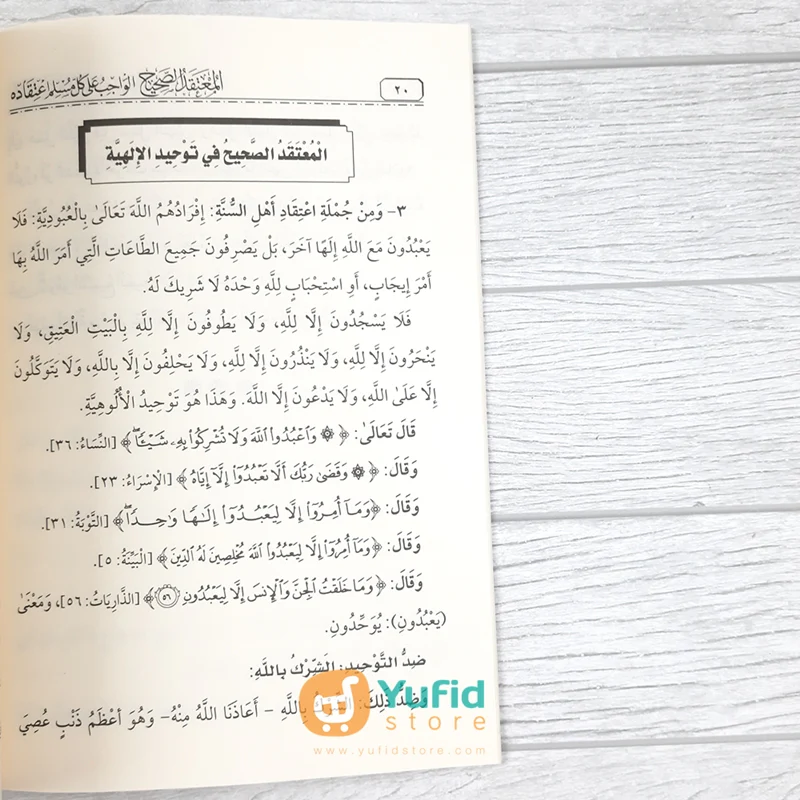 ٢٠
المعتقد الصحيح الواجب على كل مسلم اعتقاده
الْمُعْتَقَدُ الصَّحِيحُ فِي تَوْحِيدِ الإِلَهِيَّةِ
٣- وَمِنْ جُمْلَةِ اعْتِقَادِ أَهْلِ السُّنَّةِ: إِفْرَادُهُمُ اللَّهَ تَعَالَىٰ بِالْعُبُودِيَّةِ: فَلَا
يَعْبُدُونَ مَعَ اللَّهِ إِلَهًا آخَرَ، بَلْ يَصْرِفُونَ جَمِيعَ الطَّاعَاتِ الَّتِي أَمَرَ اللَّهُ بِهَا
أَمْرَ إِيجَابٍ، أَوِ اسْتِحْبَابٍ لِلَّهِ وَحْدَهُ لَا شَرِيكَ لَهُ.
فَلَا يَسْجُدُونَ إِلَّا لِلَّهِ، وَلَا يَطُوفُونَ إِلَّا لِلَّهِ بِالْبَيْتِ الْعَتِيقِ، وَلَا
يَنْحَرُونَ إِلَّا لِلَّهِ، وَلَا يَنْذُرُونَ إِلَّا لِلَّهِ، وَلَا يَحْلِفُونَ إِلَّا بِاللَّهِ، وَلَا يَتَوَكَّلُونَ
إِلَّا عَلَىٰ اللَّهِ، وَلَا يَدْعُونَ إِلَّا اللَّهَ. وَهَذَا هُوَ تَوْحِيدُ الْأُلُوهِيَّةِ.
قَالَ تَعَالَىٰ: ﴿ ۞ وَاعْبُدُوا اللَّهَ وَلَا تُشْرِكُوا بِهِ شَيْئًا ﴾ [النِّسَاءُ: ٣٦].
وَقَالَ: ﴿ ۞ وَقَضَىٰ رَبُّكَ أَلَّا تَعْبُدُوا إِلَّا إِيَّاهُ ﴾ [الْإِسْرَاءُ: ٢٣].
وَقَالَ: ﴿ وَمَا أُمِرُوا إِلَّا لِيَعْبُدُوا إِلَٰهًا وَاحِدًا ﴾ [التَّوْبَةُ: ٣١].
وَقَالَ: ﴿ وَمَا أُمِرُوا إِلَّا لِيَعْبُدُوا اللَّهَ مُخْلِصِينَ لَهُ الدِّينَ ﴾ [الْبَيِّنَةُ: ٥].
وَقَالَ: ﴿ وَمَا خَلَقْتُ الْجِنَّ وَالْإِنسَ إِلَّا لِيَعْبُدُونِ ٥٦ ﴾ [الذَّارِيَاتُ: ٥٦]، وَمَعْنَىٰ
(يَعْبُدُونِ): يُوَحِّدُونِ.
ضِدُّ التَّوْحِيدِ: الشِّرْكُ بِاللَّهِ:
وَضِدُّ ذَلِكَ: الشِّرْكُ بِاللَّهِ - أَعَاذَنَا اللَّهُ مِنْهُ - وَهُوَ أَعْظَمُ ذَنْبٍ عُصِيَ
Yufid
store
www.yufidstore.com